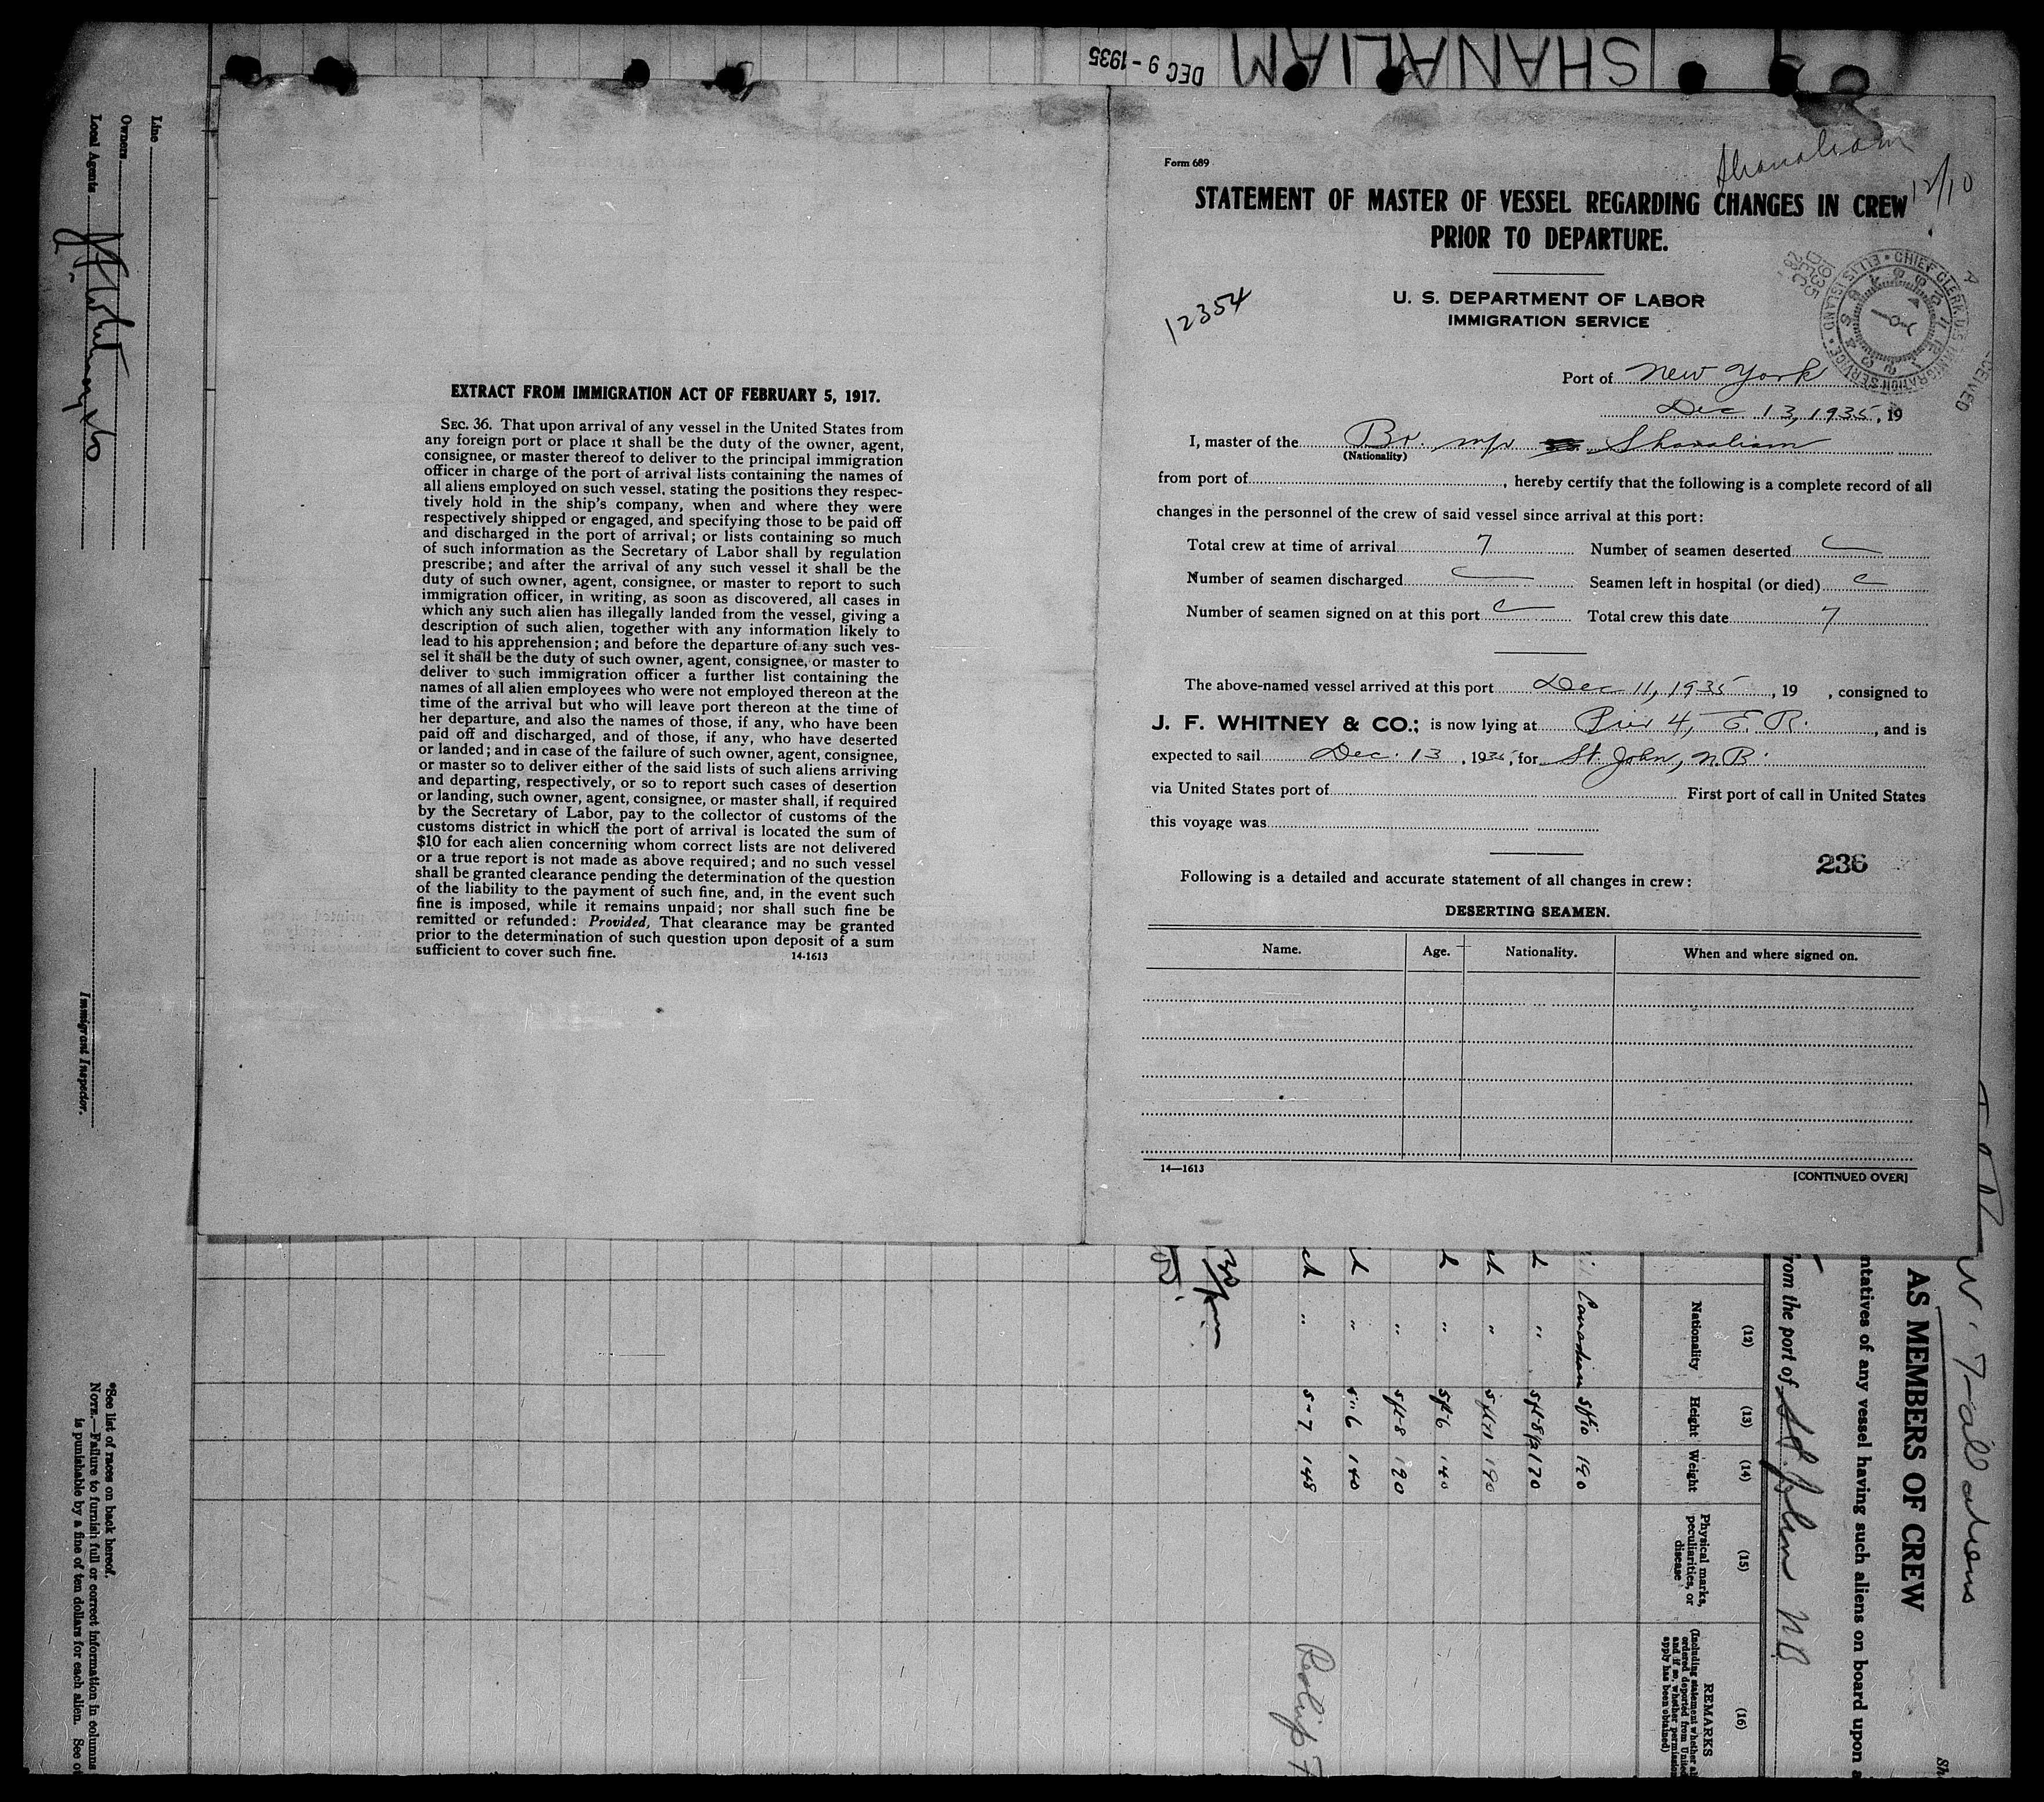 SHANALIAM
DEC 9 - 1935
Line
Owners
Local Agents
J F Whitney & Co
Immigrant Inspector.
*See list of races on back hereof.
NOTE.—Failure to furnish full or correct information in columns
is punishable by a fine of ten dollars for each alien. See
EXTRACT FROM IMMIGRATION ACT OF FEBRUARY 5, 1917.
SEC. 36. That upon arrival of any vessel in the United States from
any foreign port or place it shall be the duty of the owner, agent,
consignee, or master thereof to deliver to the principal immigration
officer in charge of the port of arrival lists containing the names of
all aliens employed on such vessel, stating the positions they respec-
tively hold in the ship's company, when and where they were
respectively shipped or engaged, and specifying those to be paid off
and discharged in the port of arrival; or lists containing so much
of such information as the Secretary of Labor shall by regulation
prescribe; and after the arrival of any such vessel it shall be the
duty of such owner, agent, consignee, or master to report to such
immigration officer, in writing, as soon as discovered, all cases in
which any such alien has illegally landed from the vessel, giving a
description of such alien, together with any information likely to
lead to his apprehension; and before the departure of any such ves-
sel it shall be the duty of such owner, agent, consignee, or master to
deliver to such immigration officer a further list containing the
names of all alien employees who were not employed thereon at the
time of the arrival but who will leave port thereon at the time of
her departure, and also the names of those, if any, who have been
paid off and discharged, and of those, if any, who have deserted
or landed; and in case of the failure of such owner, agent, consignee,
or master so to deliver either of the said lists of such aliens arriving
and departing, respectively, or so to report such cases of desertion
or landing, such owner, agent, consignee, or master shall, if required
by the Secretary of Labor, pay to the collector of customs of the
customs district in which the port of arrival is located the sum of
$10 for each alien concerning whom correct lists are not delivered
or a true report is not made as above required; and no such vessel
shall be granted clearance pending the determination of the question
of the liability to the payment of such fine, and, in the event such
fine is imposed, while it remains unpaid; nor shall such fine be
remitted or refunded: Provided, That clearance may be granted
prior to the determination of such question upon deposit of a sum
sufficient to cover such fine.
14-1613
Form 689
Shanaliam
12/10
STATEMENT OF MASTER OF VESSEL REGARDING CHANGES IN CREW
PRIOR TO DEPARTURE.
U. S. DEPARTMENT OF LABOR
IMMIGRATION SERVICE
12354
CHIEF CLERK, U.S. IMMIGRATION SERVICE • ELLIS ISLAND
RECEIVED
Port of New York
Dec 13, 1935, 19
I, master of the Br. m/v Shanaliam
(Nationality)
from port of , hereby certify that the following is a complete record of all
changes in the personnel of the crew of said vessel since arrival at this port:
Total crew at time of arrival 7 Number of seamen deserted
Number of seamen discharged Seamen left in hospital (or died)
Number of seamen signed on at this port Total crew this date 7
The above-named vessel arrived at this port Dec 11, 1935, 19 , consigned to
J. F. WHITNEY & CO.; is now lying at Pier 4, E. R. , and is
expected to sail Dec. 13, 1935, for St. John, N.B.
via United States port of First port of call in United States
this voyage was
236
Following is a detailed and accurate statement of all changes in crew:
DESERTING SEAMEN.
Name. Age. Nationality. When and where signed on.
14—1613
[CONTINUED OVER]
AS MEMBERS OF CREW
ntatives of any vessel having such aliens on board upon
rom the port of St. John NB
(12) (13) (14) (15) (16)
Nationality Height Weight Physical marks, peculiarities, or disease REMARKS
(Including statement whether
ordered deported from United
and if so, whether permission
apply has been obtained)
Canadian 5ft10 190
" 5ft-8½ 170
" 5ft-11 190
" 5ft-6 140
" 5ft-8 120
" 5"6 140
" 5-7 148